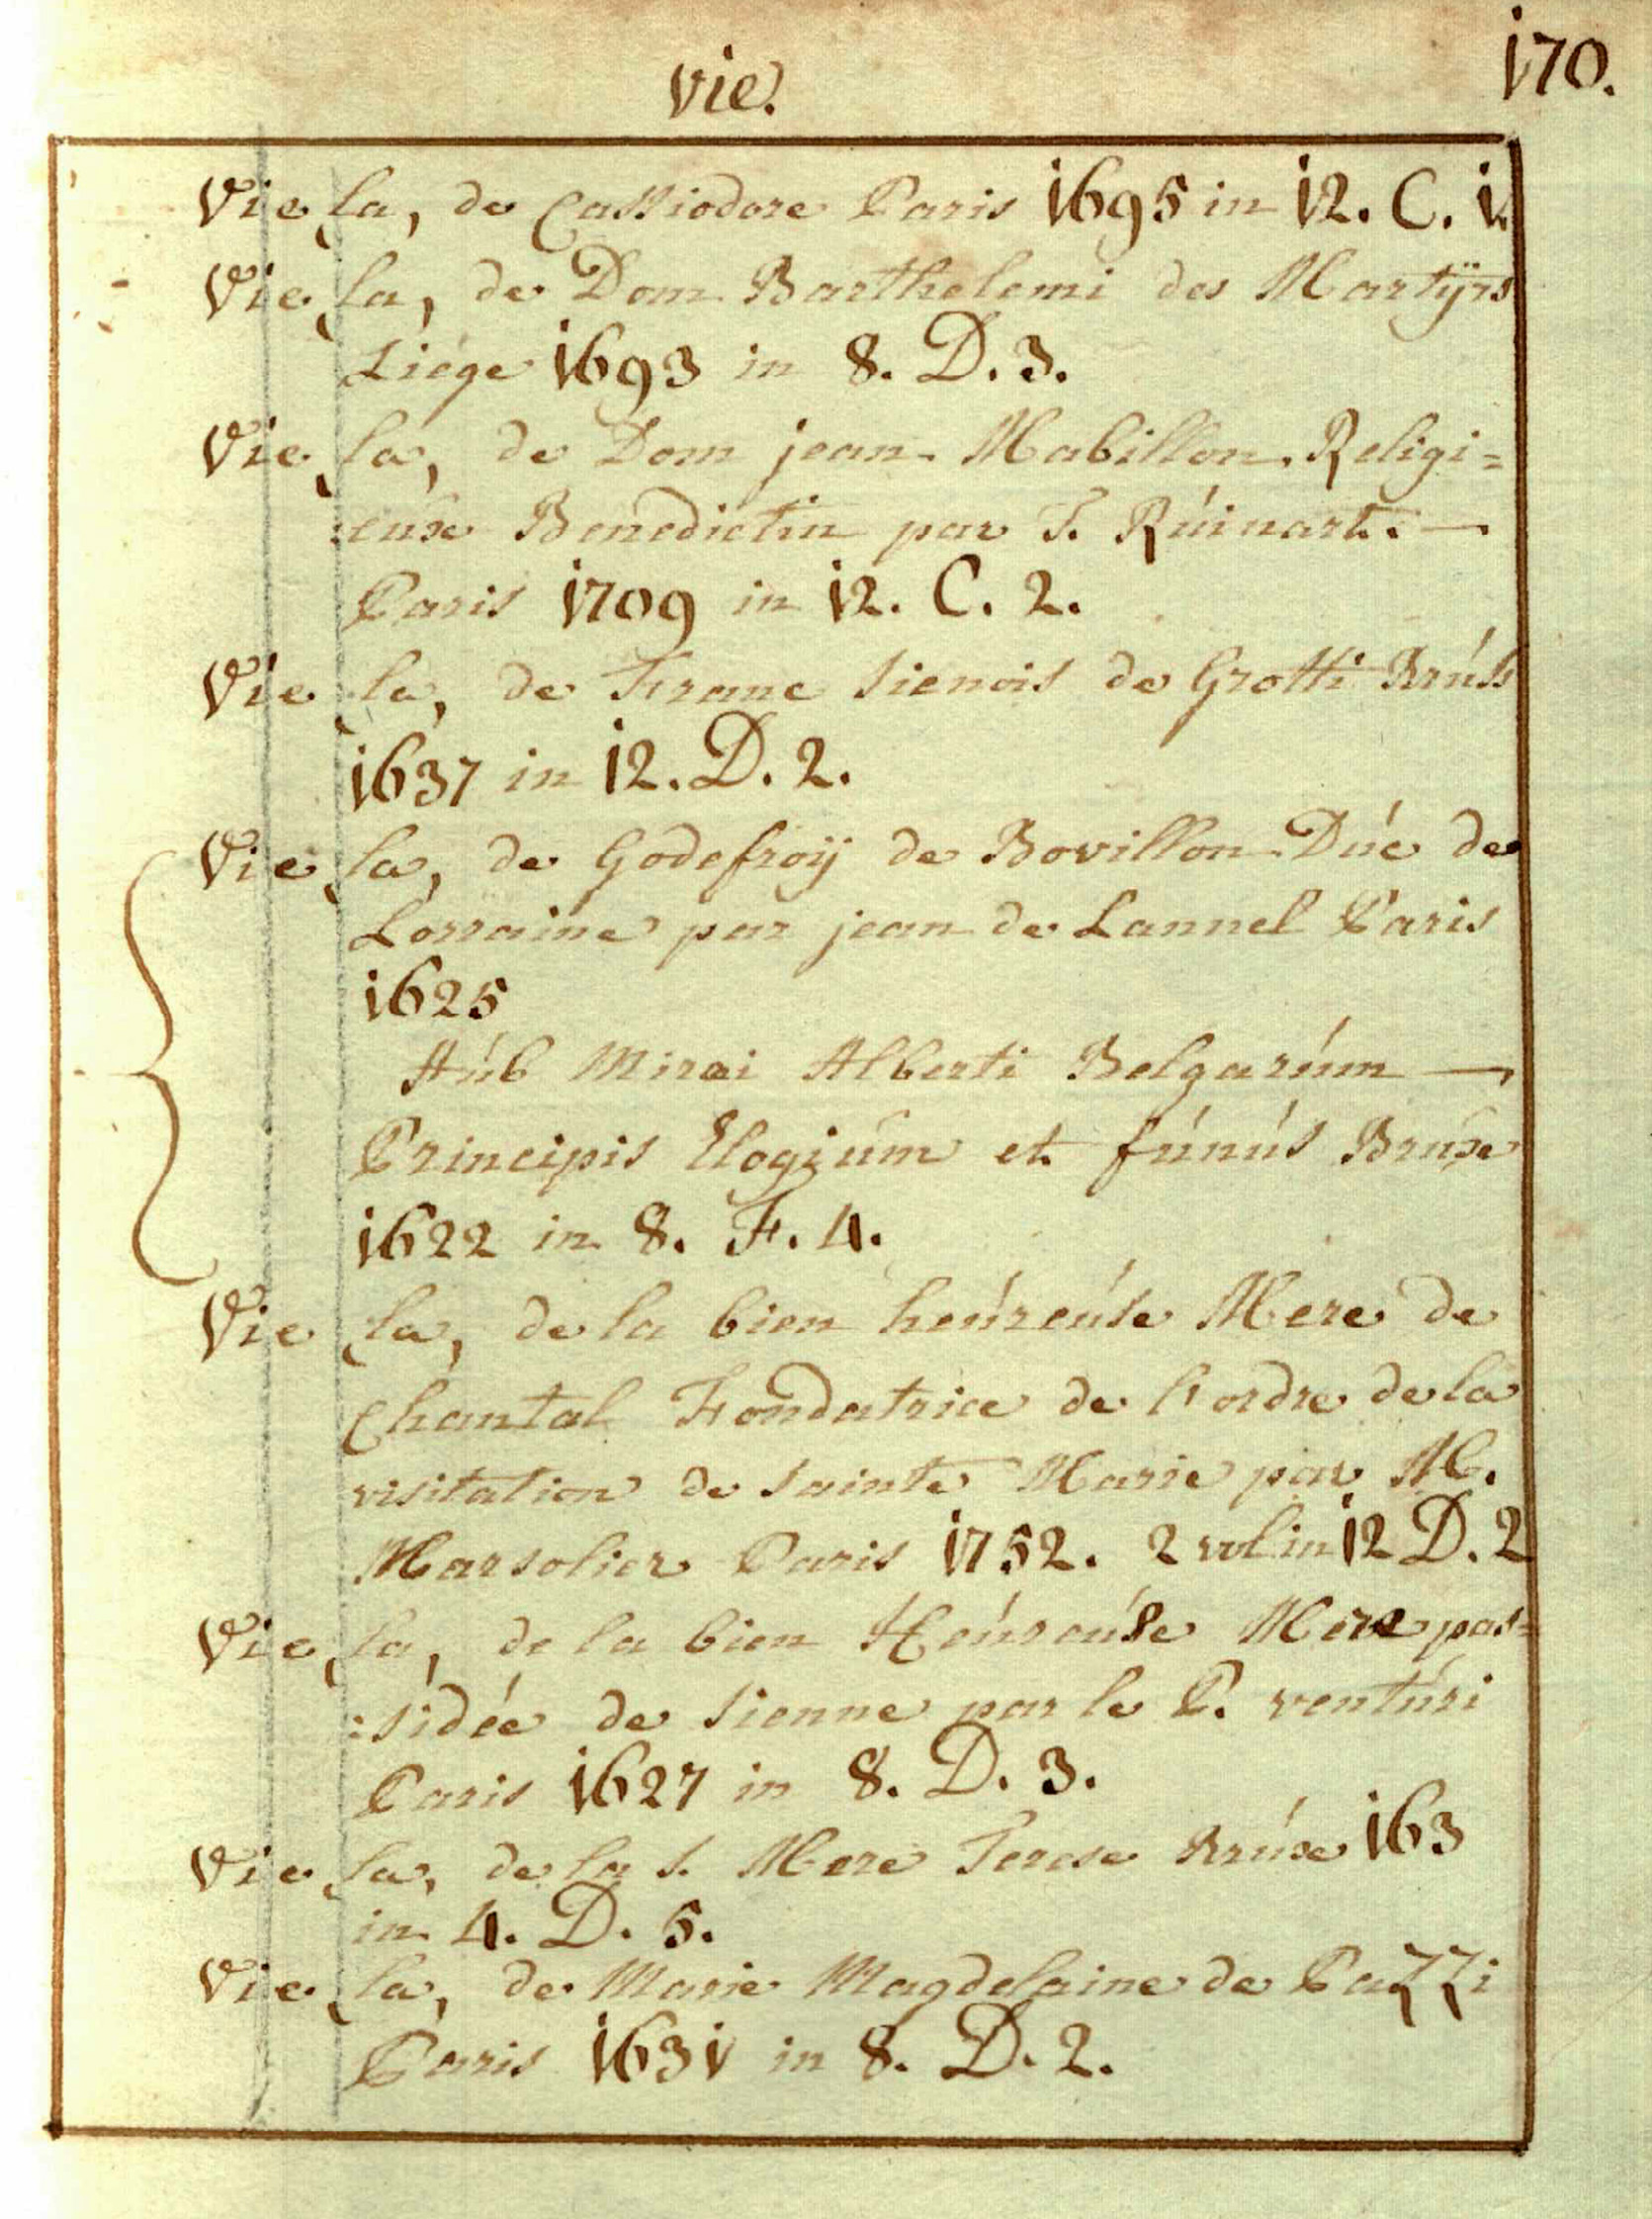 170.
Vie.
Vie la, de Cassiodore Paris 1695 in 12. C. 1.
Vie la, de Dom Barthelemi des Martÿrs
Liége 1693 in 8. D. 3.
Vie la, de Dom jean Mabillon Religi=
:euse Benedictin par T. Rúinart. —
Paris 1709 in 12. C. 2.
Vie la, de Franc Sienois de Grotti Brúss
1637 in 12. D. 2.
Vie la, de Godefroÿ de Bovillon Dúc de
Lorraine par jean de Lannel Paris
1625
Aúb Miræi Alberti Belgarúm —
Principis Elogiúm et fúnús Bruxe
1622 in 8. F. 4.
Vie la, de la bien heúreúse Mere de
Chantal Fondatrice de l'ordre de la
visitation de sainte Marie par M.
Marsolier Paris 1752. 2 vol in 12 D. 2
Vie la, de la bien Heúreúse Mere pas=
:sidée de Sienne par le P. ventúri
Paris 1627 in 8. D. 3.
Vie la, de la S. Mere Terese Brúxe 163
in 4. D. 5.
Vie la, de Marie Magdelaine de Pazzi
Paris 1631 in 8. D. 2.